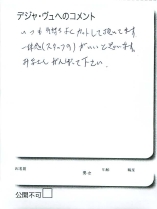 デジャ・ヴュへのコメント
いつも気持ちよくカットして頂いてます
一体感(スタッフの)がいいと思います。
がんばって下さい。
お名前 男女 年齢 職業
公開不可